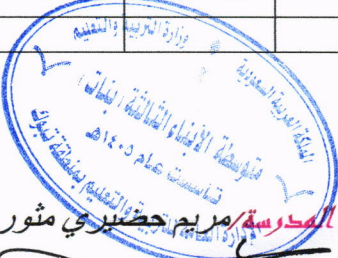 وزارة التربية والتعليم
المملكة العربية السعودية
متوسطة الأبناء الثالثة (بنات)
تأسست عام ١٤٠٥هـ
والتعليم بمنطقة تبوك
المدرسة/مريم حضيري مثور